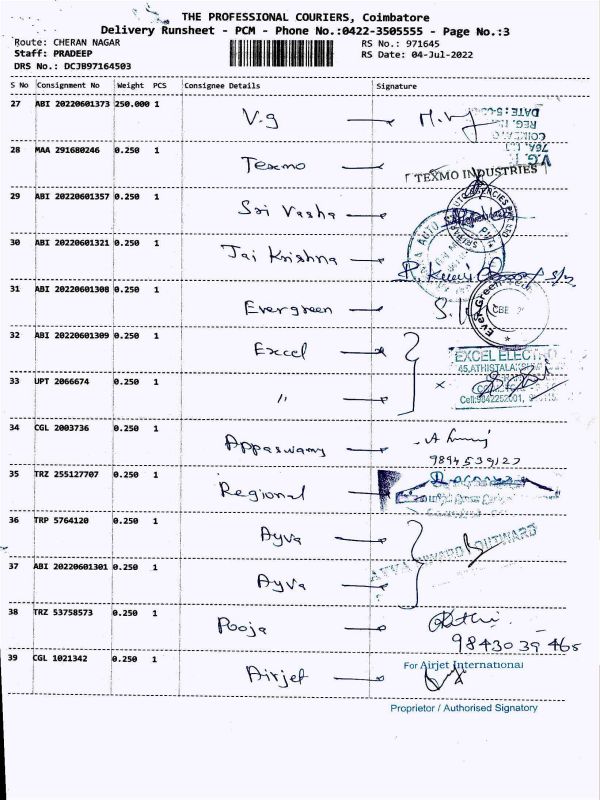 THE PROFESSIONAL COURIERS, Coimbatore
Delivery Runsheet - PCM - Phone No.:0422-3505555 - Page No.:3
Route: CHERAN NAGAR RS No.: 971645
Staff: PRADEEP RS Date: 04-Jul-2022
DRS No.: DCJB97164503
S No Consignment No Weight PCS Consignee Details Signature
27 ABI 20220601373 250.000 1 V.g
28 MAA 291680246 0.250 1 Texmo TEXMO INDUSTRIES
29 ABI 20220601357 0.250 1 Sri Varsha
30 ABI 20220601321 0.250 1 Jai Krishna
31 ABI 20220601308 0.250 1 Evergreen
32 ABI 20220601309 0.250 1 Excel
33 UPT 2066674 0.250 1 〃
34 CGL 2003736 0.250 1 Appaswamy
9894539127
35 TRZ 255127707 0.250 1 Regional
36 TRP 5764120 0.250 1 Ayva
AYVA INWARD / OUTWARD
37 ABI 20220601301 0.250 1 Ayva
38 TRZ 53758573 0.250 1 Pooja
9843039465
39 CGL 1021342 0.250 1 Airjet For Airjet International
Proprietor / Authorised Signatory